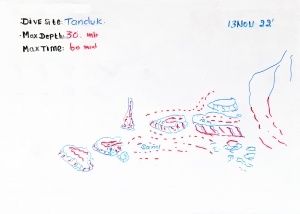 Dive site: Tanduk.
13 NOV 22'
Max Depth: 30. mtr
Max Time: 60 mnt